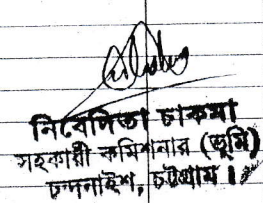 নিবেদিতা চাকমা
সহকারী কমিশনার (ভূমি)
চন্দনাইশ, চট্টগ্রাম।